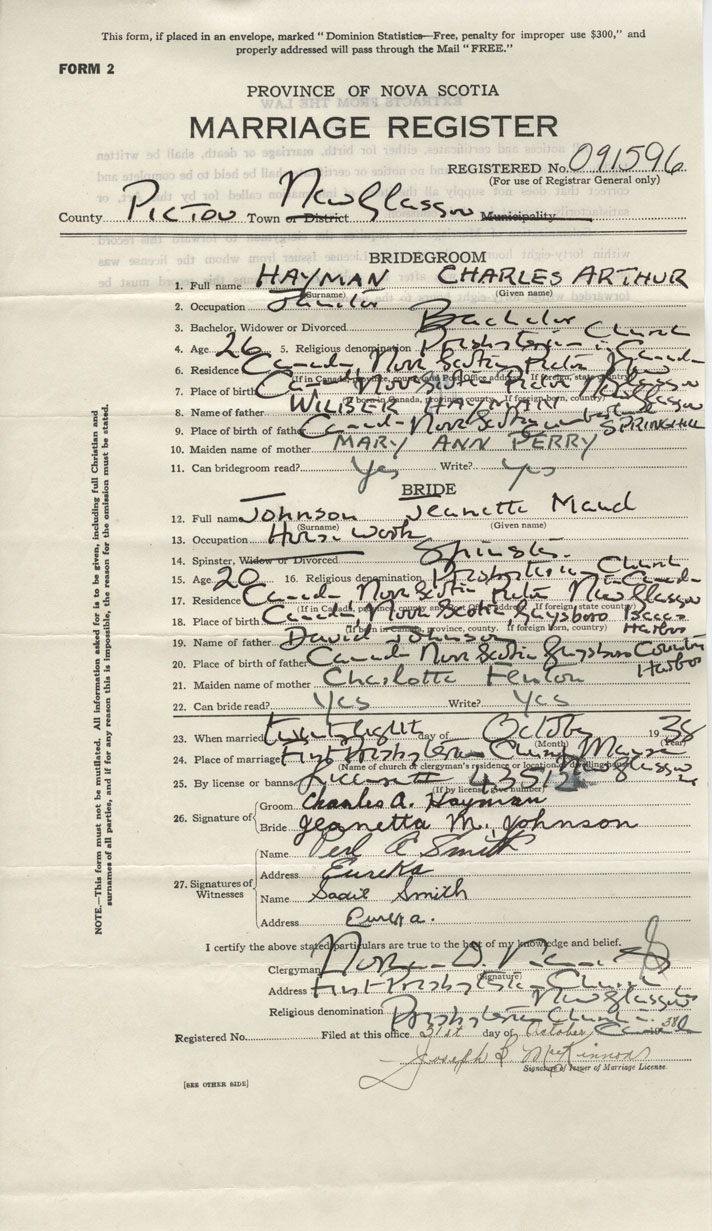 This form, if placed in an envelope, marked "Dominion Statistics—Free, penalty for improper use $300," and
properly addressed will pass through the Mail "FREE."
FORM 2
PROVINCE OF NOVA SCOTIA
MARRIAGE REGISTER
REGISTERED No. 091596
(For use of Registrar General only)
County Pictou Town or District New Glasgow Municipality
BRIDEGROOM
1. Full name HAYMAN CHARLES ARTHUR
(Surname) (Given name)
2. Occupation Janitor
3. Bachelor, Widower or Divorced Bachelor
4. Age 26 5. Religious denomination Presbyterian Church in Canada
6. Residence Canada Nova Scotia Pictou New Glasgow
(If in Canada, province, county and Post Office address. If foreign, state country)
7. Place of birth Canada Nova Scotia Pictou New Glasgow
(If born in Canada, province, county. If foreign born, country)
8. Name of father WILBER HAYMAN
9. Place of birth of father Canada Nova Scotia Cumberland SPRINGHILL
10. Maiden name of mother MARY ANN PERRY
11. Can bridegroom read? Yes Write? Yes
BRIDE
12. Full name Johnson Jeanetta Maud
(Surname) (Given name)
13. Occupation House work
14. Spinster, Widow or Divorced Spinster.
15. Age 20 16. Religious denomination Presbyterian Church in Canada
17. Residence Canada Nova Scotia Pictou New Glasgow
(If in Canada, province, county and Post Office address. If foreign, state country)
18. Place of birth Canada, Nova Scotia, Guysboro Isaacs Harbor
(If born in Canada, province, county. If foreign born, country)
19. Name of father David Johnson
20. Place of birth of father Canada Nova Scotia Guysboro Country Harbor
21. Maiden name of mother Charlotte Fenton
22. Can bride read? Yes Write? Yes
23. When married twenty eight day of October 1938
(Month) (Year)
24. Place of marriage First Presbyterian Church Manse New Glasgow
(Name of church or clergyman's residence or location of dwelling house)
25. By license or banns License
(If by license, give number)
26. Signature of
Groom Charles A. Hayman
Bride Jeanetta M. Johnson
27. Signatures of Witnesses
Name C Smith
Address Eureka
Name Sadie Smith
Address Eureka.
I certify the above stated particulars are true to the best of my knowledge and belief.
Clergyman
(Signature)
Address First Presbyterian Church New Glasgow
Religious denomination Presbyterian Church in Canada
Registered No. Filed at this office 31st day of October 1938
Joseph McKinnon
Signature of Issuer of Marriage License.
[SEE OTHER SIDE]
NOTE.—This form must not be mutilated. All information asked for is to be given, including full Christian and
surnames of all parties, and if for any reason this is impossible, the reason for the omission must be stated.